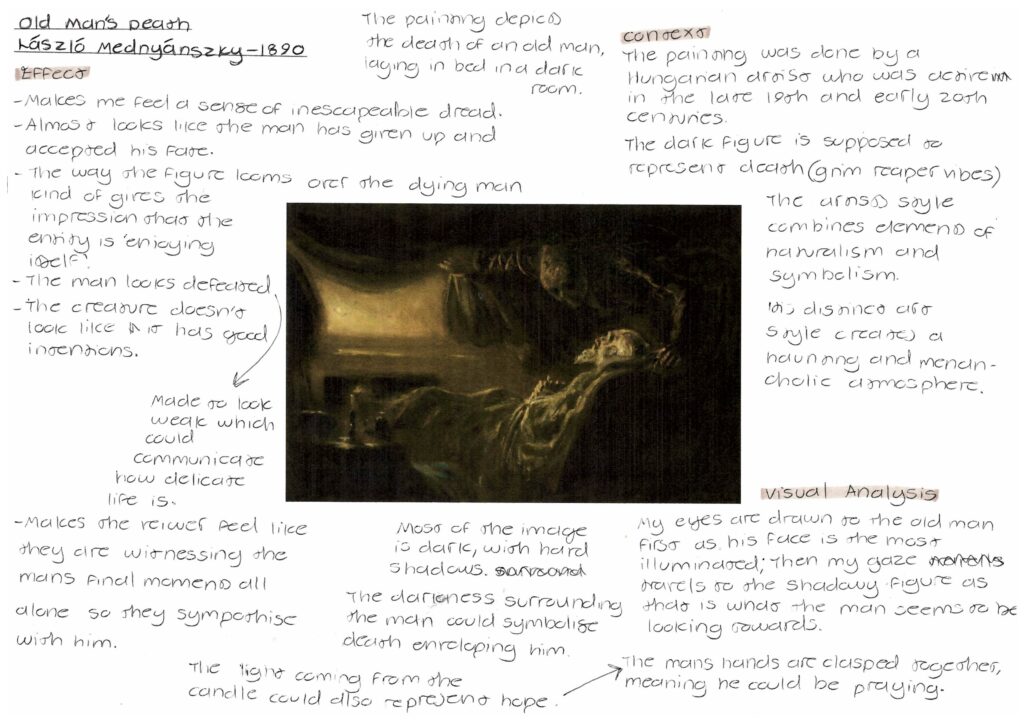 Old Man's Death
László Mednyánszky-1890
Effect
-Makes me feel a sense of inescapeable dread.
-Almost looks like the man has given up and
accepted his fate.
-The way the figure looms over the dying man
kind of gives the
impression that the
entity is 'enjoying
itself'.
-The man looks defeated
-The creature doesn't
look like it has good
intentions.
Made to look
weak which
could
communicate
how delicate
life is.
-Makes the veiwer feel like
they are witnessing the
mans final moments all
alone so they sympothise
with him.
The painting depicts
the death of an old man,
laying in bed in a dark
room.
Context
The painting was done by a
Hungarian artist who was active
in the late 19th and early 20th
centuries.
The dark figure is supposed to
represent death (grim reaper vibes)
The artists style
combines elements of
naturalism and
symbolism.
His distinct art
style creates a
haunting and menan-
cholic atmosphere.
Visual Analysis
My eyes are drawn to the old man
first as his face is the most
illuminated; then my gaze
travels to the shadowy figure as
that is what the man seems to be
looking towards.
The mans hands are clasped together,
meaning he could be praying.
Most of the image
is dark, with hard
shadows. surround
The darkness surrounding
the man could symbolise
death enveloping him.
The light coming from the
candle could also represent hope.